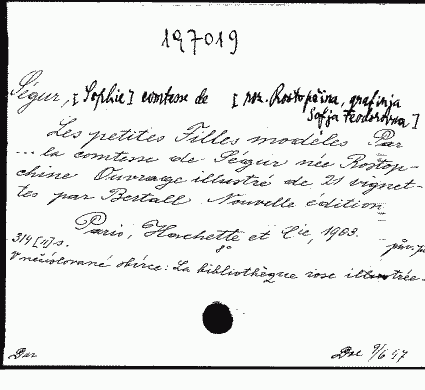 197019
Ségur, [Sophie] comtesse de [roz. Rostopčina, grafinja
Sofja Feodorovna]
Les petites Filles modèles Par
... la comtesse de Ségur née Rostop-
chine Ouvrage illustré de 21 vignet-
tes par Bertall Nouvelle édition
Paris, Hachette et Cie, 1903.
314 [1] s. 8° pův.
V nečíslované sbírce: La bibliothèque rose illustrée.
Dar Doe 9/6 47